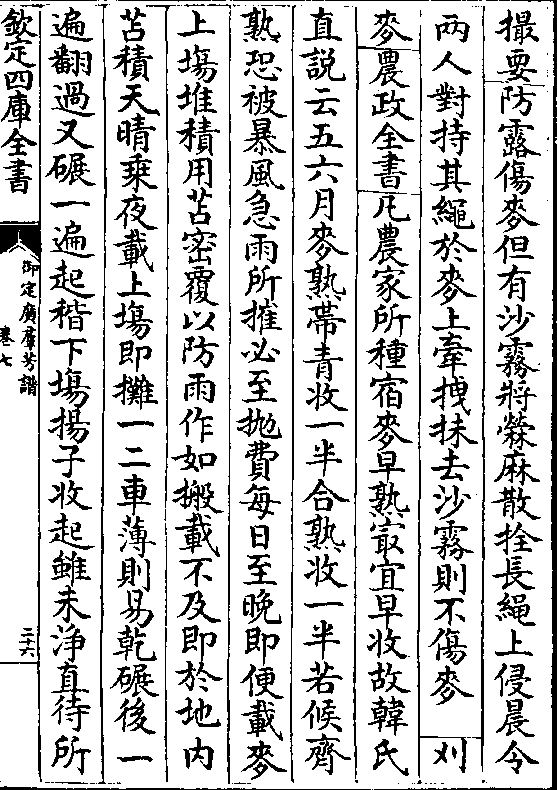 撮要防露傷麥但有沙霧將𦾔麻散拴長繩上侵晨令
兩人對持其繩於麥上牽拽抹去沙霧則不傷麥　刈
麥農政全書凡農家所種宿麥早熟㝡宜早收故韓氏
直說云五六月麥熟帶青收一半合熟收一半若候齊
熟恐被暴風急雨所摧必至拋費每日至晚即便載麥
上塲堆積用苫密覆以防雨作如搬載不及即於地內
苫積天晴乗夜載上塲即攤一二車薄則易乾碾後一
遍翻過又碾一遍起稭下塲揚子收起雖未淨直待所
欽定四庫全書
御定廣羣芳譜
卷七
二十六